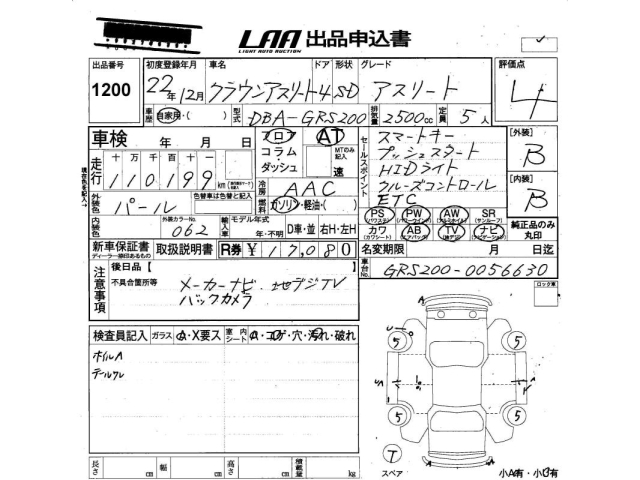 LAA 出品申込書
LIGHT AUTO AUCTION
出品番号 初度登録年月 車名 ドア 形状 グレード 評価点
1200 22年12月 クラウンアスリート 4 SD アスリート 4
車歴 自家用・( ) 型式 DBA-GRS200 排気量 2500cc 定員 5人
車検 年 月 日 フロア AT セールスポイント スマートキー [外装]
コラム・ダッシュ MTのみ記入 速 プッシュスタート B
走行 十万千百十一 HIDライト
110199 km 冷房 AAC クルーズコントロール [内装]
外装色 パール 色替車は色替と記入 燃料 ガソリン・軽油・( ) ETC B
現在色を記入
内装色 外装カラーNo. 062 輸入車 モデル年式 年・不明 D車・並 右H・左H
PS PW AW SR(サンルーフ)
カワ(カワシート) AB TV ナビ 純正品のみ丸印
新車保証書 取扱説明書 R券 ¥17,080 名変期限 月 日迄
ディーラー捺印あるもの
注意事項 後日品【 】 車台No. GRS200-0056630
不具合箇所等 メーカーナビ 地デジTV ロック車
バックカメラ
検査員記入 ガラス A・X要ス 室内シート A・コゲ・穴・汚れ・破れ
ホイルA
テールワレ
A
5 5
5 5
T
スペア 小A有・小U有
長さ cm 幅 cm 高さ cm 積載量 kg